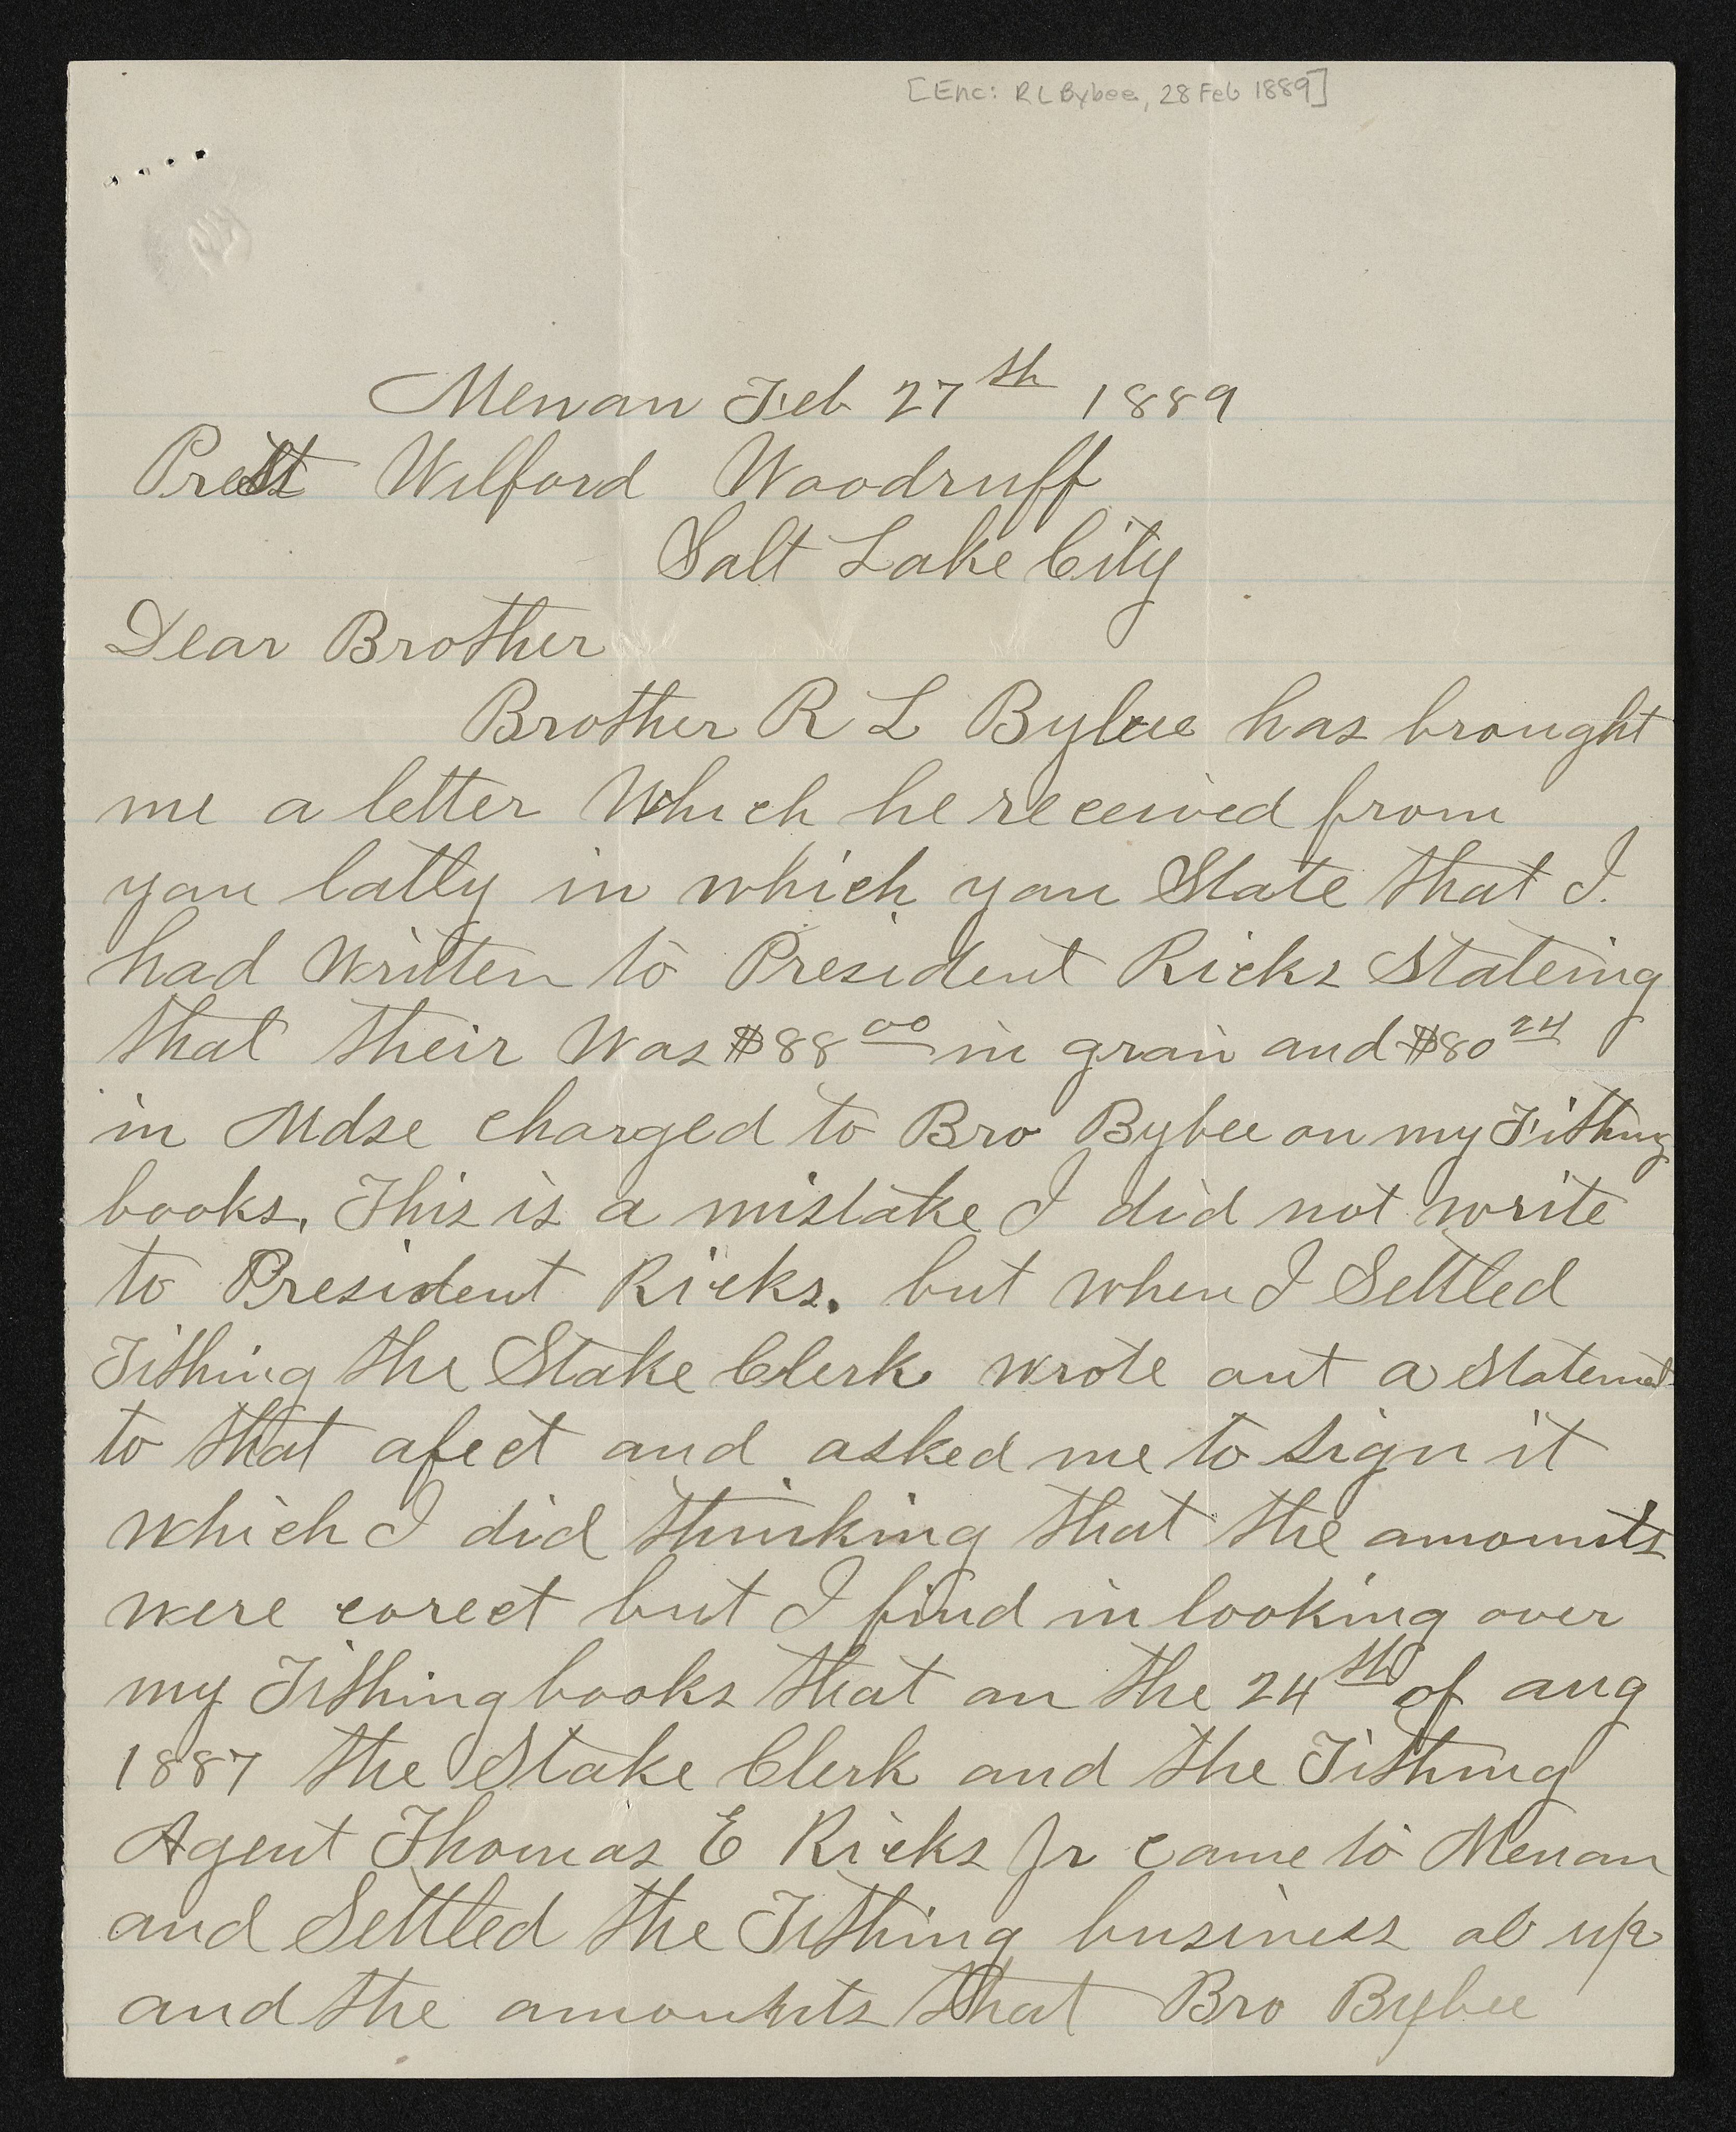 [Enc: R L Bybee, 28 Feb 1889]
Menan Feb 27th 1889
Prest Wilford Woodruff
Salt Lake City
Dear Brother
Brother R L Bybee has brought
me a letter which he received from
you latly in which you State that I
had written to President Ricks Stateing
that their was $88 00 in grain and $80 24
in Mdse charged to Bro Bybee on my Tithing
books. This is a mistake I did not write
to President Ricks. but when I Settled
Tithing the Stake Clerk wrote out a statement
to that afect and asked me to sign it
which I did thinking that the amounts
were corect but I find in looking over
my Tithing books that on the 24th of aug
1887 the Stake Clerk and the Tithing
Agent Thomas E Ricks Jr came to Menan
and Settled the Tithing business al up
and the amounts that Bro Bybee